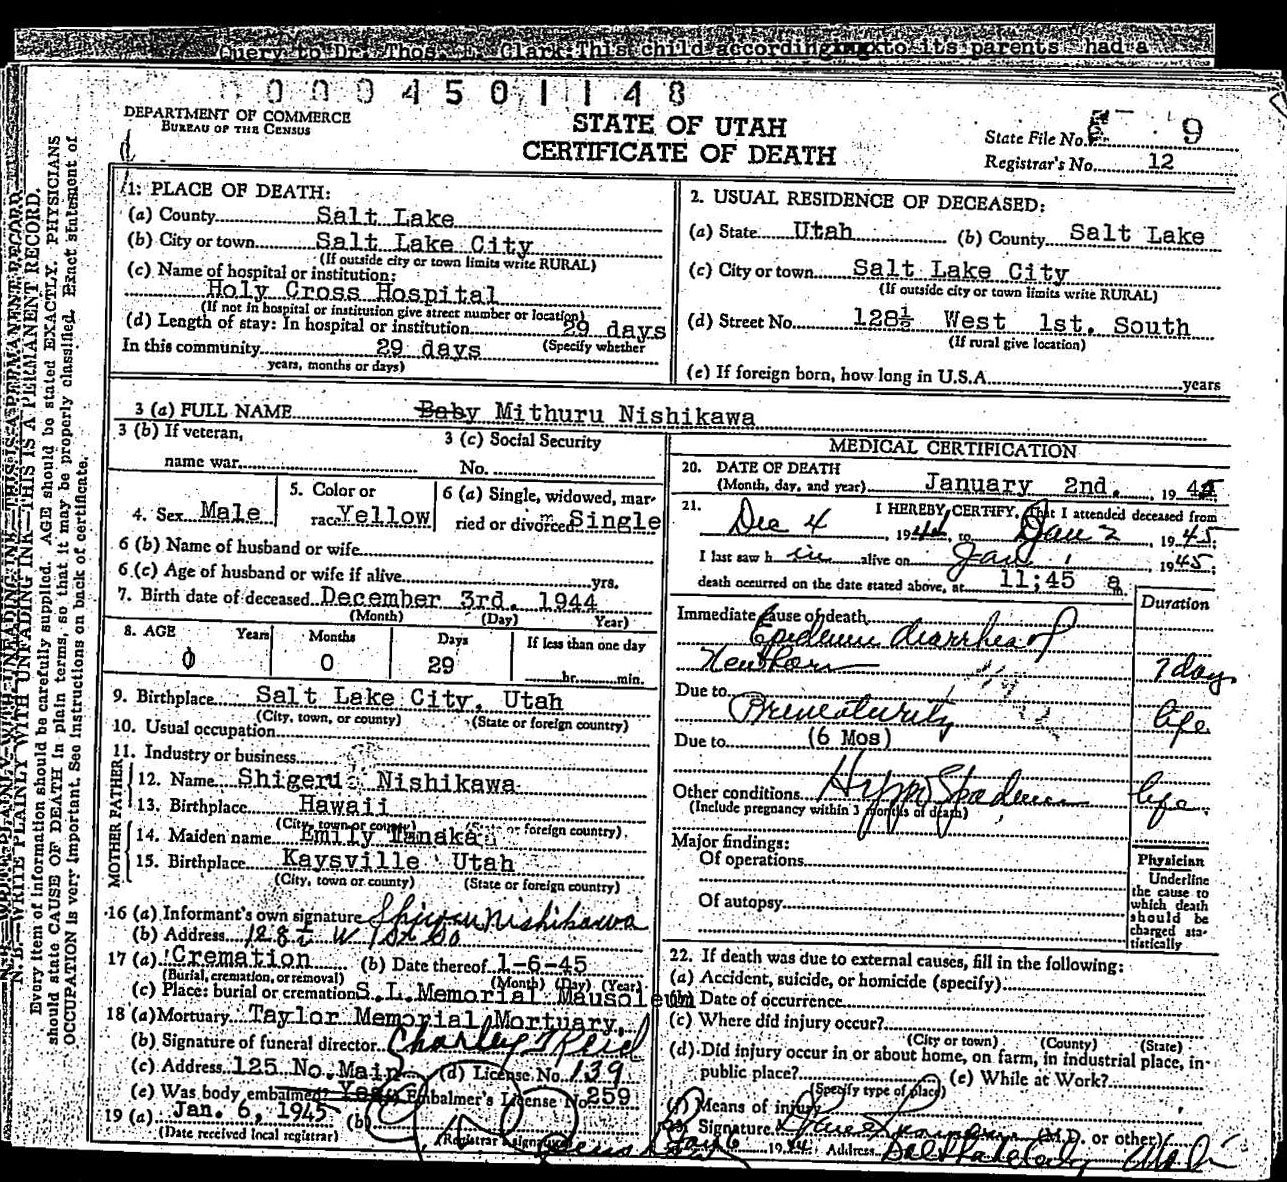 Query to Dr. Thos. E. Clark:This child according to it's parents had a
0 0 0 9 4 5 0 1 1 4 8
DEPARTMENT OF COMMERCE
BUREAU OF THE CENSUS
STATE OF UTAH
CERTIFICATE OF DEATH
State File No. 9
Registrar's No. 12
N. B.—WRITE PLAINLY WITH UNFADING INK—THIS IS A PERMANENT RECORD.
Every item of information should be carefully supplied. AGE should be stated EXACTLY. PHYSICIANS
should state CAUSE OF DEATH in plain terms, so that it may be properly classified. Exact statement of
OCCUPATION is very important. See instructions on back of certificate.
1: PLACE OF DEATH:
(a) County Salt Lake
(b) City or town Salt Lake City
(If outside city or town limits write RURAL)
(c) Name of hospital or institution:
Holy Cross Hospital
(If not in hospital or institution give street number or location)
(d) Length of stay: In hospital or institution 29 days
(Specify whether
In this community 29 days
years, months or days)
2. USUAL RESIDENCE OF DECEASED:
(a) State Utah (b) County Salt Lake
(c) City or town Salt Lake City
(If outside city or town limits write RURAL)
(d) Street No. 128½ West 1st. South
(If rural give location)
(e) If foreign born, how long in U.S.A. years
3 (a) FULL NAME Baby Mithuru Nishikawa
3 (b) If veteran,
name war
3 (c) Social Security
No.
4. Sex Male
5. Color or
race Yellow
6 (a) Single, widowed, mar-
ried or divorced Single
6 (b) Name of husband or wife
6 (c) Age of husband or wife if alive yrs.
7. Birth date of deceased December 3rd. 1944
(Month) (Day) Year)
8. AGE Years Months Days If less than one day
0 0 29 hr. min.
9. Birthplace Salt Lake City, Utah
(City, town, or county) (State or foreign country)
10. Usual occupation
11. Industry or business
FATHER
12. Name Shigeru Nishikawa
13. Birthplace Hawaii
(City, town or county) (State or foreign country)
MOTHER
14. Maiden name Emily Tanaka
15. Birthplace Kaysville Utah
(City, town or county) (State or foreign country)
16 (a) Informant's own signature Nishikawa
(b) Address 128½ W 1st So
17 (a) Cremation (b) Date thereof 1-6-45
(Burial, cremation, or removal) (Month) (Day) (Year)
(c) Place: burial or cremation S.L.Memorial Mausoleum
18 (a) Mortuary Taylor Memorial Mortuary,
(b) Signature of funeral director Charley Reid
(c) Address 125 No.Main (d) License No. 139
(e) Was body embalmed? Yes Embalmer's License No 259
19 (a) Jan. 6, 1945 (b)
(Date received local registrar) (Registrar's signature)
MEDICAL CERTIFICATION
20. DATE OF DEATH
(Month, day, and year) January 2nd. , 1945
21. I HEREBY CERTIFY, That I attended deceased from
Dec 4 , 1944, to Jan 2 , 1945.
I last saw h im alive on Jan 1 , 1945;
death occurred on the date stated above, at 11;45 a
Duration
Immediate Cause of death
Epidemic diarrhea of
Newborn 7 days
Due to
Prematurity life
Due to (6 Mos)
Other conditions Hypospadius life
(Include pregnancy within 3 months of death)
Major findings:
Of operations
Of autopsy
Physician
Underline
the cause to
which death
should be
charged sta-
tistically
22. If death was due to external causes, fill in the following:
(a) Accident, suicide, or homicide (specify)
(b) Date of occurrence
(c) Where did injury occur?
(City or town) (County) (State)
(d) Did injury occur in or about home, on farm, in industrial place, in
public place? (e) While at Work?
(Specify type of place)
(f) Means of injury
23. Signature (M.D. or other)
Jan 6 19 Address Salt Lake City